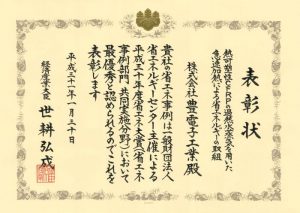 表彰状
熱可塑性CFRPの過熱水蒸気を用いた
急速加熱による省エネルギーの取組
株式会社豊電子工業殿
貴社の省エネ事例は一般財団法人
省エネルギーセンター主催による
平成三十年度省エネ大賞(省エネ
事例部門 共同実施分野)において
最優秀と認められるのでこれを
表彰します
平成三十一年一月三十日
経済産業大臣 世耕弘成